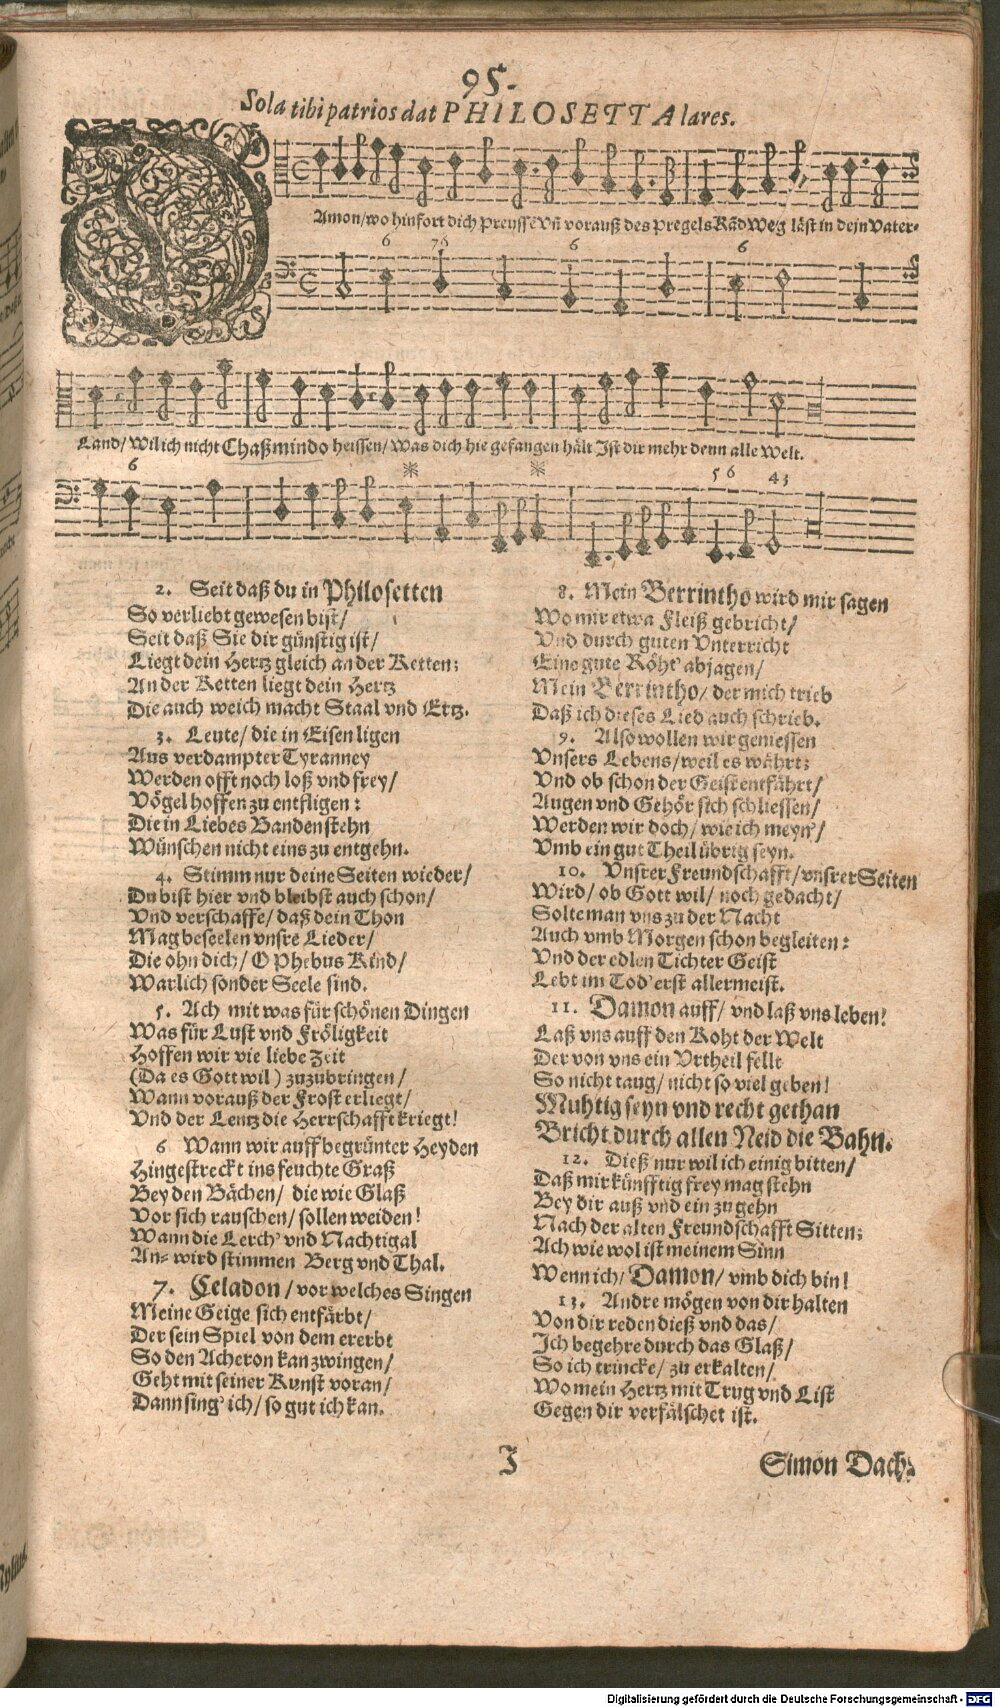 95.
Sola tibi patrios dat PHILOSETTA lares.
DAmon/wo hinfort dich Preussē Vñ vorauß des Pregels Rãd Weg läst in dein Vater-
6 76 6 6
Land/ Wil ich nicht Chaßmindo heissen/ Was dich hie gefangen hält Ist dir mehr denn alle Welt.
6 5 6 4 3
2. Seit daß du in Philosetten
So verliebt gewesen bist/
Seit daß Sie dir günstig ist/
Liegt dein Hertz gleich an der Ketten;
An der Ketten liegt dein Hertz
Die auch weich macht Staal vnd Ertz.
3. Leute/ die in Eisen ligen
Aus verdampter Tyranney
Werden offt noch loß vnd frey/
Vögel hoffen zu entfligen:
Die in Liebes Banden stehn
Wünschen nicht eins zu entgehn.
4. Stimm nur deine Seiten wieder/
Du bist hier vnd bleibst auch schon/
Vnd verschaffe/ daß dein Thon
Mag beseelen vnsre Lieder/
Die ohn dich/ O Phebus Kind/
Warlich sonder Seele sind.
5. Ach mit was für schönen Dingen
Was für Lust vnd Fröligkeit
Hoffen wir vie liebe Zeit
(Da es Gott wil) zuzubringen/
Wann vorauß der Frost erliegt/
Vnd der Lentz die Herrschafft kriegt!
6 Wann wir auff begrünter Heyden
Hingestreckt ins feuchte Graß
Bey den Bächen/ die wie Glaß
Vor sich rauschen/ sollen weiden!
Wann die Lerch' vnd Nachtigal
An= wird stimmen Berg vnd Thal.
7. Celadon/ vor welches Singen
Meine Geige sich entfärbt/
Der sein Spiel von dem ererbt
So den Acheron kan zwingen/
Geht mit seiner Kunst voran/
Dann sing' ich/ so gut ich kan.
8. Mein Berrintho wird mir sagen
Wo mir etwa Fleiß gebricht/
Vnd durch guten Vnterricht
Eine gute Röht' abjagen/
Mein Berrintho/ der mich trieb
Daß ich dieses Lied auch schrieb.
9. Also wollen wir geniessen
Vnsers Lebens/ weil es währt;
Vnd ob schon der Geist entfährt/
Augen vnd Gehör sich schliessen/
Werden wir doch/ wie ich meyn'/
Vmb ein gut Theil übrig seyn.
10. Vnsrer Freundschafft/ vnsrer Seiten
Wird/ ob Gott wil/ noch gedacht/
Solte man vns zu der Nacht
Auch vmb Morgen schon begleiten:
Vnd der edlen Tichter Geist
Lebt im Tod' erst allermeist.
11. Damon auff/ vnd laß vns leben!
Laß vns auff den Koht der Welt
Der von vns ein Vrtheil fellt
So nicht taug/ nicht so viel geben!
Muhtig seyn vnd recht gethan
Bricht durch allen Neid die Bahn.
12. Dieß nur wil ich einig bitten/
Daß mir künfftig frey mag stehn
Bey dir auß vnd ein zu gehn
Nach der alten Freundschafft Sitten;
Ach wie wol ist meinem Sinn
Wenn ich/ Damon/ vmb dich bin!
13. Andre mögen von dir halten
Von dir reden dieß vnd das/
Ich begehre durch das Glaß/
So ich trincke/ zu erkalten/
Wo mein Hertz mit Trug vnd List
Gegen dir verfälschet ist.
J
Simon Dach.
Digitalisierung gefördert durch die Deutsche Forschungsgemeinschaft - DFG